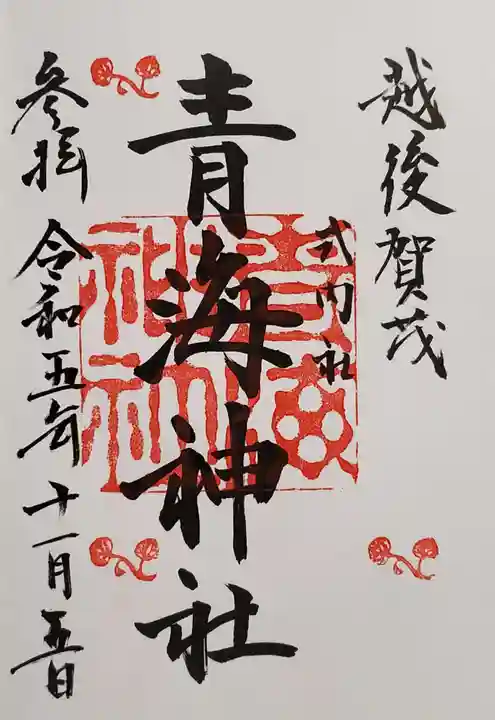 越後賀茂
式内社
青海神社
参拝 令和五年 十一月五日